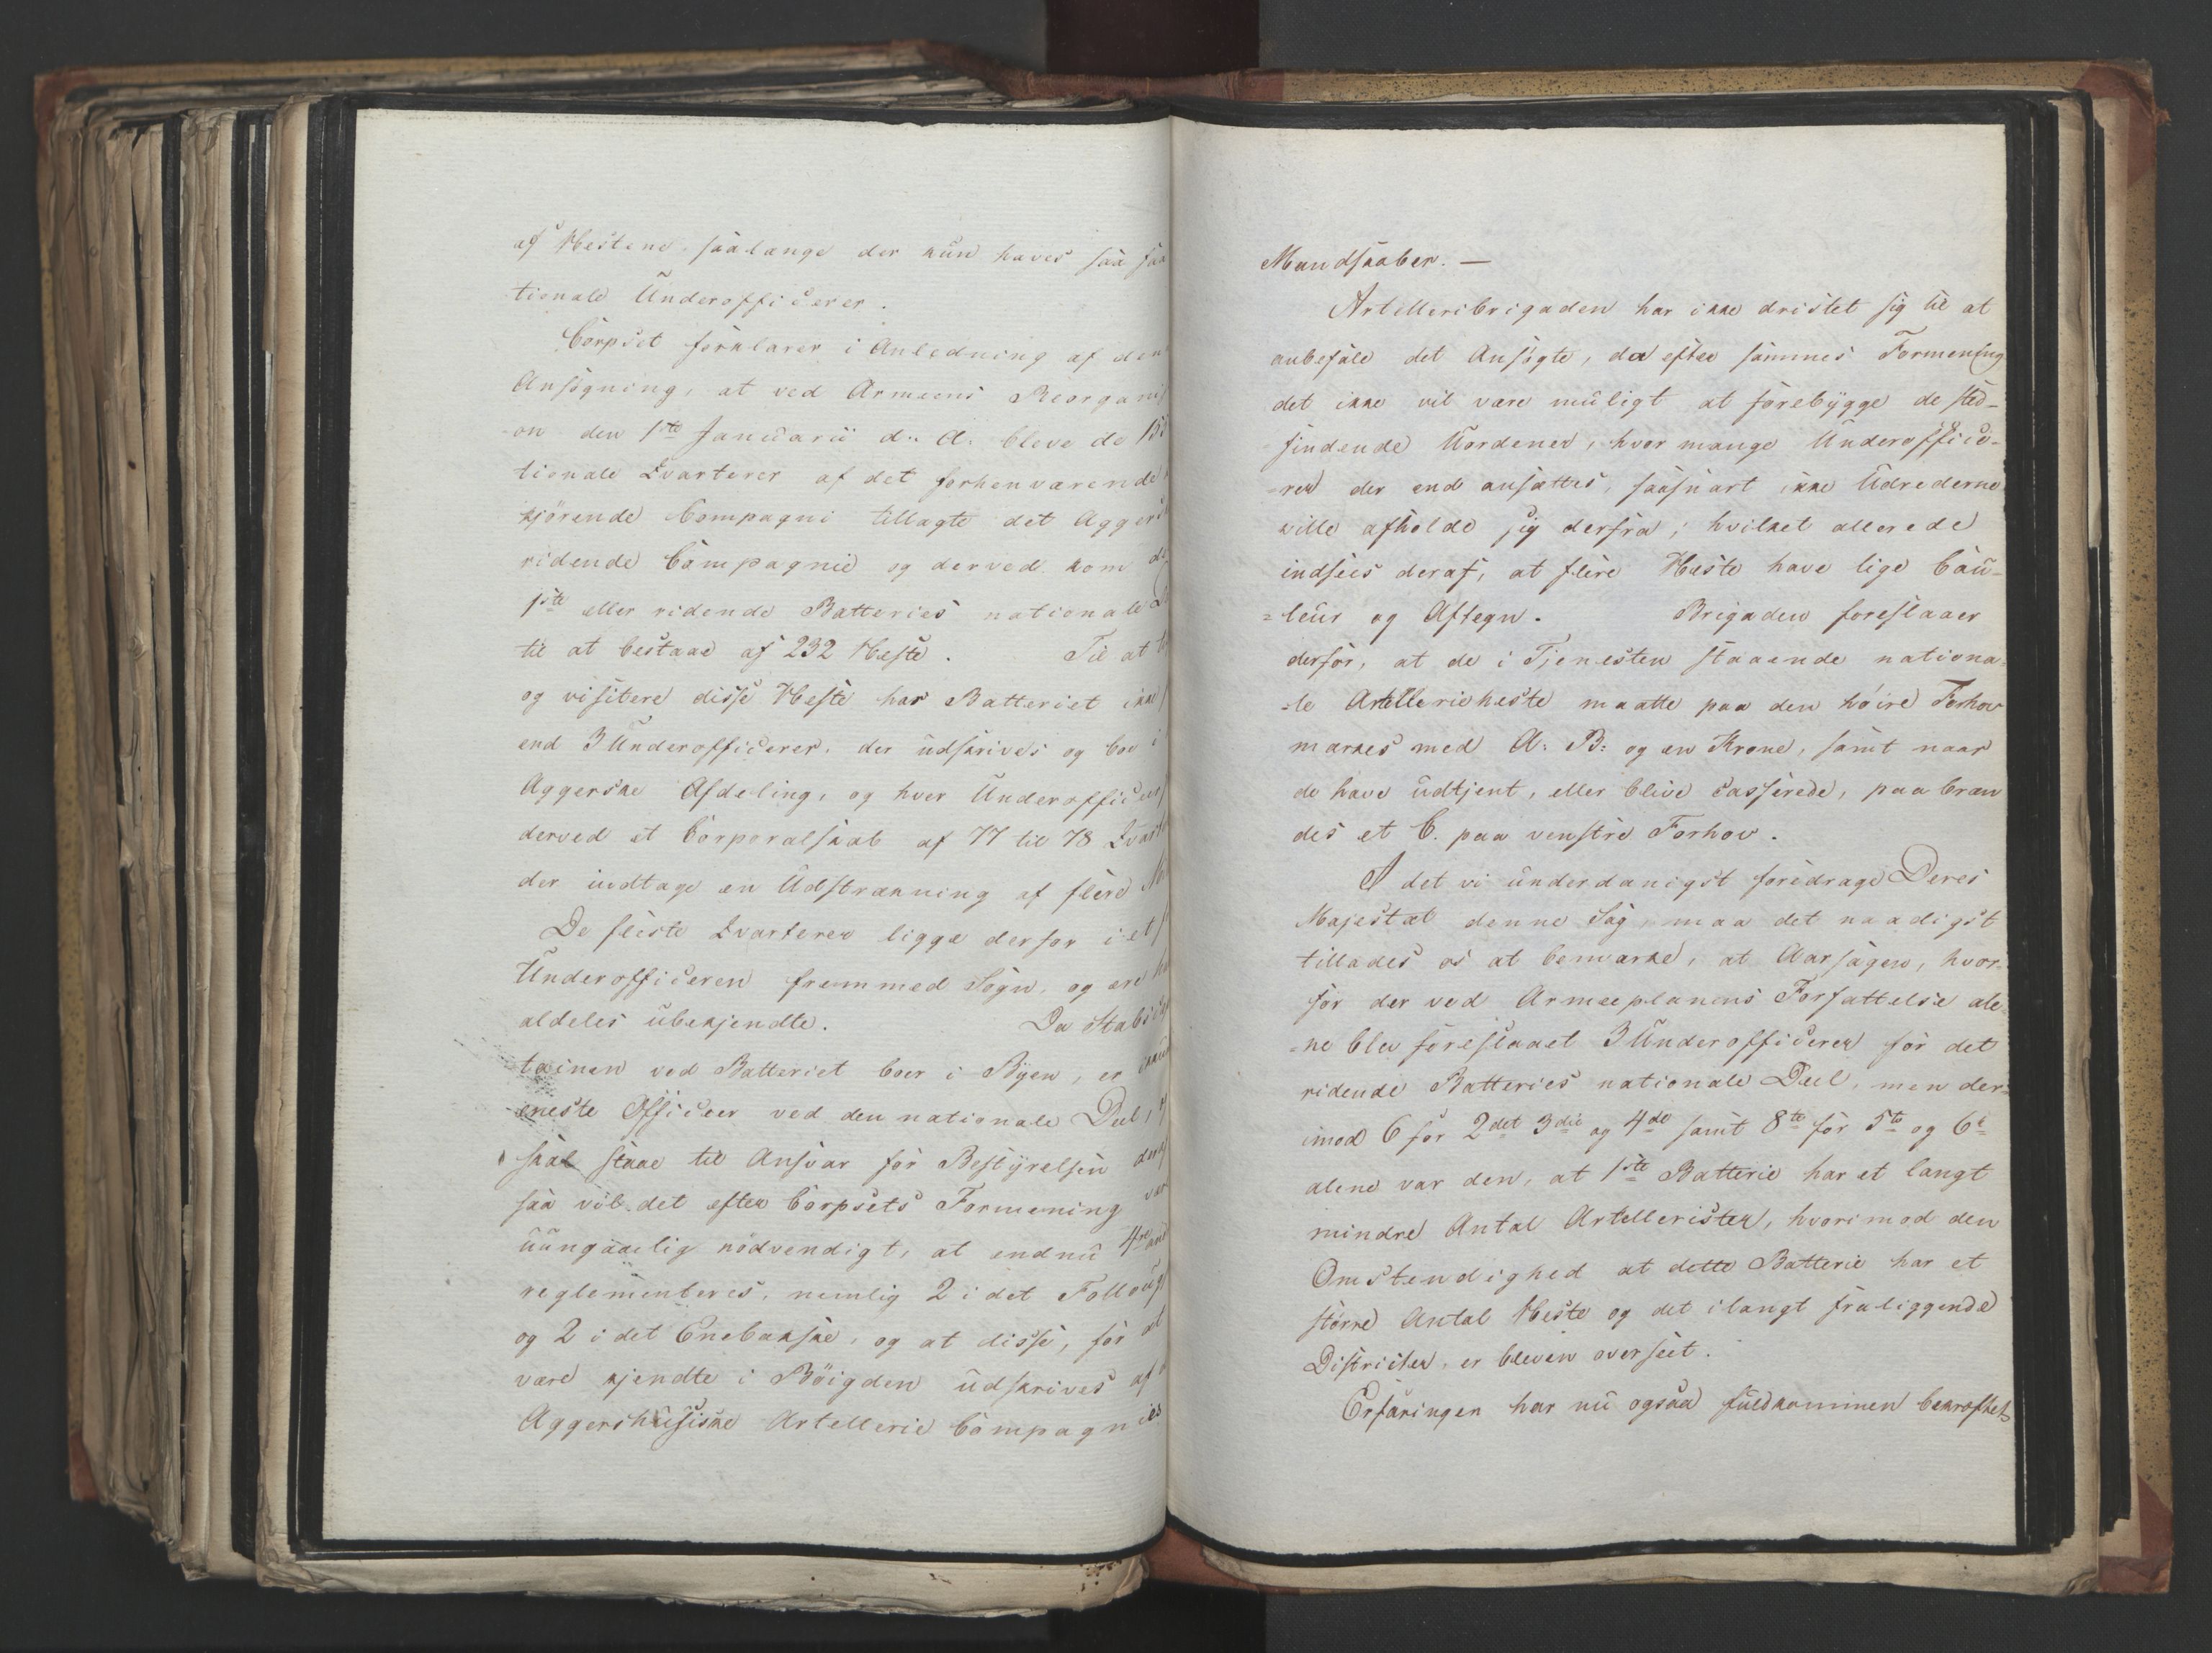 af Hestene saalænge der kun haves saa faa
tionale Underofficerer.
Corpset forklarer i Anledning af den
Ansøgning, at ved Armeens Reorganis
-on den 1ste Januarii d: A: bleve de 155
tionale Qvarterer af det forhenværende
kjörende Compagni tillagte det Aggers
ridende Compagnie og derved kom de
1ste eller ridende Batteries nationale De
til at bestaae af 232 Heste. Til at
og visitere disse Heste har Batteriet ikke
end 3 Underofficerer, der udskrives og boe i
Aggerske Afdeling, og hver Underofficeer
derved et Corporalskab af 77 til 78 Qvart
der indtage en Udstrækning af flere Mi
De fleste Qvarterer ligge derfor i et
Underofficeren fremmed Sogn, og ere ha
aldeles ubekjendte. Da Stabsca
tainen ved Batteriet boer i Byen, er
eneste Officeer ved den nationale Deel,
skal staae til Ansvar for Bestyrelsen
saa vil det efter Corpsets Formening vær
uungaaelig nödvendigt, at endnu 4re
reglementeres, nemlig 2 i det Follougs
og 2 i det Enebakske, og at disse, for at
være kjendte i Böigden udskrives af
Aggershusiske Artellerie Compagnies
Mandskaber. —
Artelleribrigaden har ikke dristet sig til at
anbefale det Ansøgte, da efter sammes Formening
det ikke vil være muligt at forebygge de sted-
findende Uordener, hvor mange Underoffice-
rer der end ansættes, saasnart ikke Udrederne
ville afholde sig derfra; hvilket allerede
indsees deraf, at flere Heste have lige Cou-
=leur og Aftegn. Brigaden foreslaaer
derfor, at de i Tjenesten staaende nationa-
=le Artellerieheste maatte paa den höire Forhov
mærkes med A: B: og en Krone, samt naar
de have udtjent, eller blive casserede, paabræn
des et C. paa venstre Forhov.
I det vi underdanigst foredrage Deres
Majestæt denne Sag, maa det naadigst
tillades os at bemærke, at Aarsagen, hvor-
for der ved Armeeplanens Forfattelse ale-
=ne blev foreslaaet 3 Underofficerer for det
ridende Batteries nationale Deel, men der-
imod 6 for 2det 3die og 4de samt 8te for 5te og 6te
alene var den, at 1ste Batterie har et langt
mindre Antal Artellerister, hvorimod den
Omstendighed at dette Batterie har et
större Antal Heste og det i langt fraliggende
Districter, er bleven overseet.
Erfaringen har nu ogsaa fuldkommen bekræftet